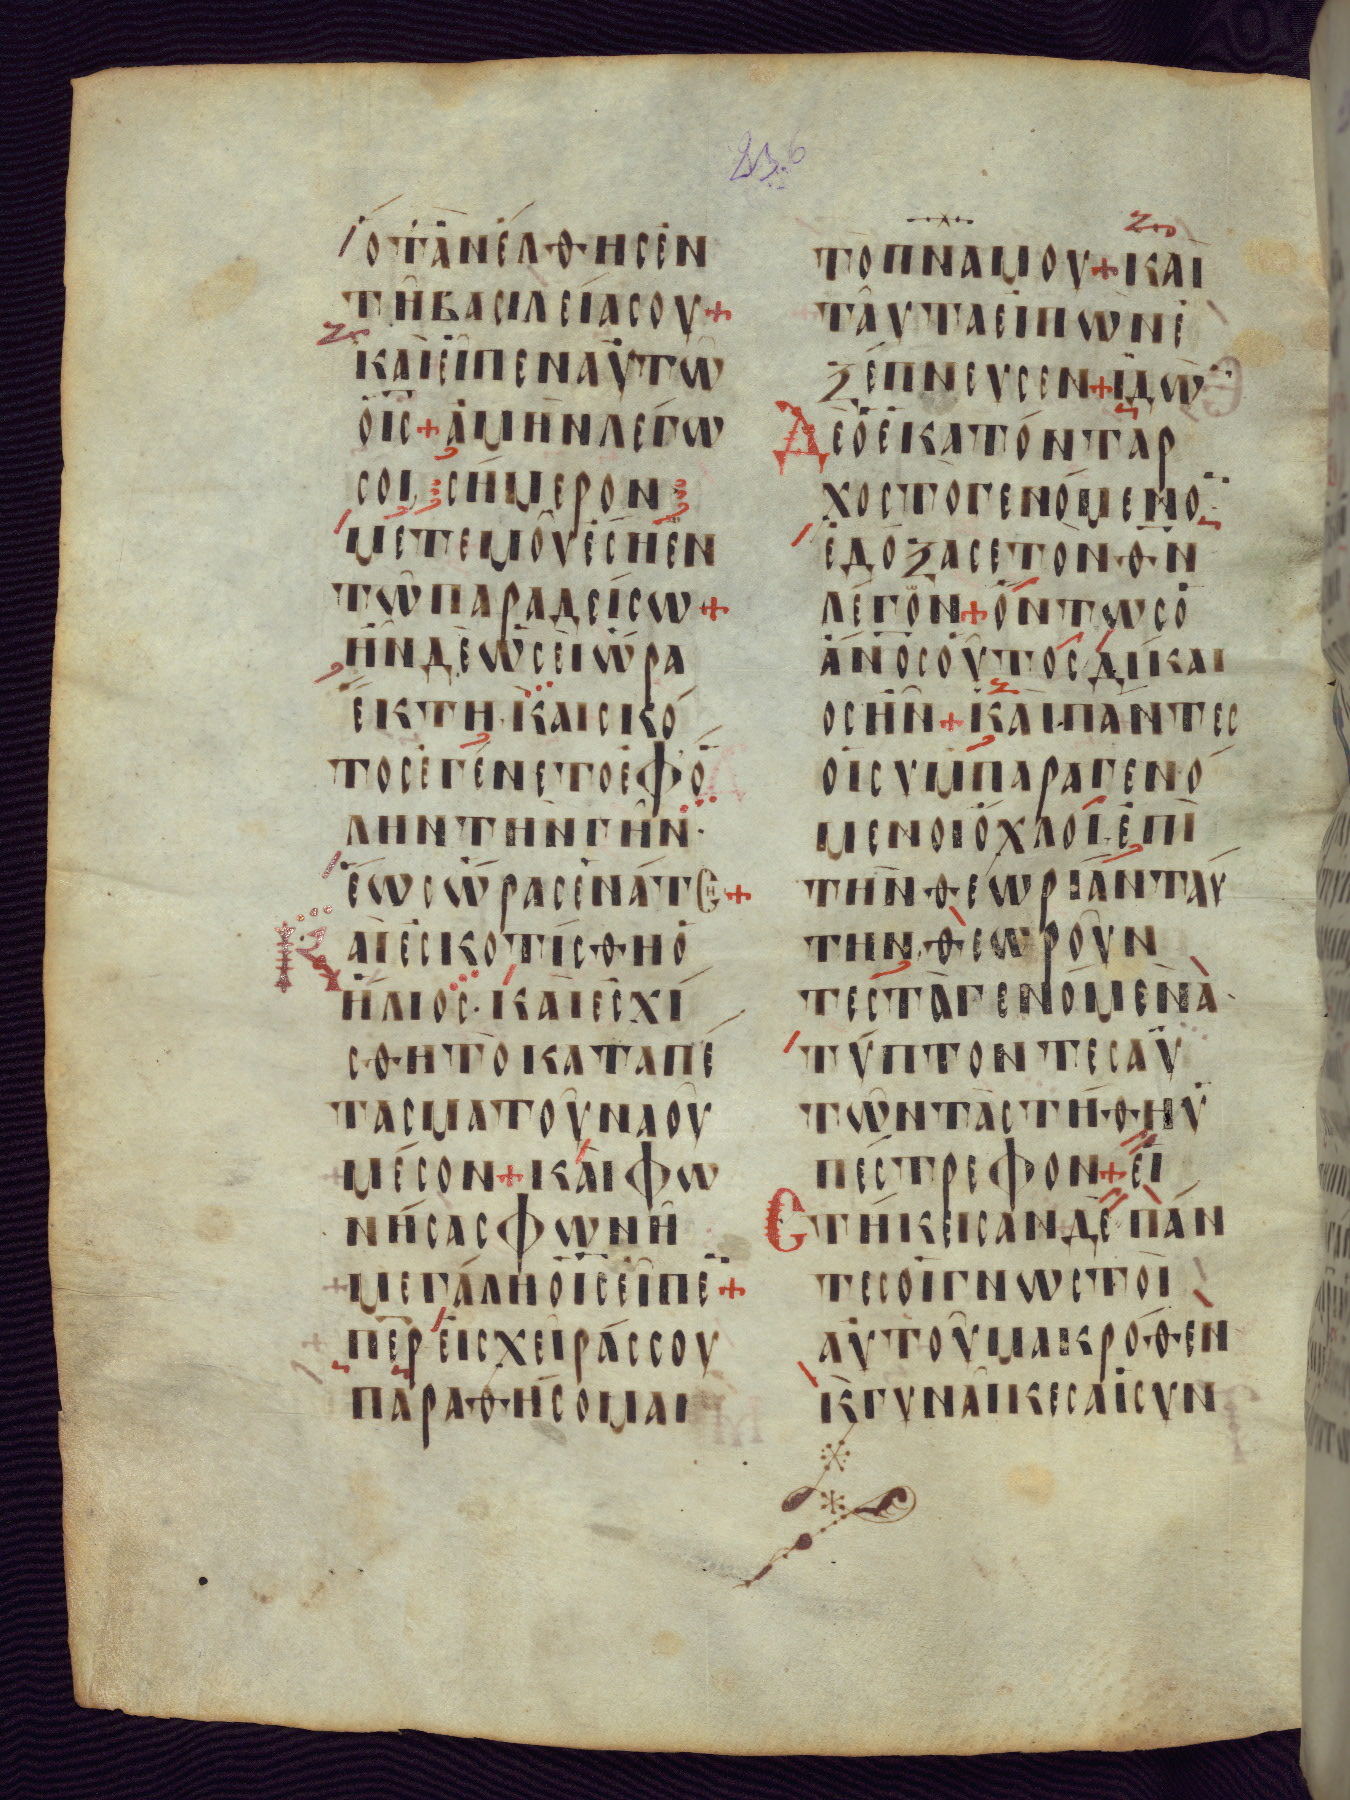 ὉΤἂΝἜΛΘΗϹἘΝ
ΤΗ͂ΒΑϹΙΛΕΊΑϹΟΥ+
ΚΑῚΕἾΠΕΝΑΥ̓ΤΩ͂
Ὁ ΙϹ+ἈΜῊΝΛΕΓΩ
ϹΟΙ,ϹΉΜΕΡΟΝ
ΜΕΤΕΜΟΥ͂ἜϹΗἘΝ
ΤΩ͂ΠΑΡΑΔΕΊϹΩ+
ἮΝΔῈὩϹΕῚὭΡΑ
ἝΚΤΗ.ΚΑΙϹΚΌ
ΤΟϹἘΓΈΝΕΤΟΕΦΌ
ΛΗΝΤῊΝΓΗ͂Ν·
ἝΩϹὭΡΑϹἘΝΆΤΗϹ+
ΚΑῚἘϹΚΟΤΊϹΘΗὉ
ἭΛΙΟϹ·ΚΑῚἘϹΧΊ
ϹΘΗΤῸΚΑΤΑΠΈ
ΤΑϹΜΑΤΟΥ͂ΝΑΟΥ͂
ΜΈϹΟΝ+ΚΑῚΦΩ
ΝΉϹΑϹΦΩΝΗ͂
ΜΕΓΆΛΗὉΙϹΕἾΠΕ+
ΠΕΡΕἸϹΧΕΙ͂ΡΆϹϹΟΥ
ΠΑΡΑΘΉϹΟΜΑΙ
ΤῸΠΝΑΜΟΥ+ΚΑῚ
ΤΑΥ͂ΤΑΕἸΠῺΝἘ
ΞΈΠΝΕΥϹΕΝ+ἸΔῺ
ΔΕὉἙΚΑΤΌΝΤΑΡ
ΧΟϹΤΟΓΕΝΌΜΕΝΟ
ἘΔΌΞΑϹΕΤῸΝΘΝ
ΛΈΓΟΝ+ὌΝΤΩϹΟ
ἉΝΟϹΟΥ͂ΤΟϹΔΊΚΑΙ
ΟϹΗ͂Ν+ΚΑῚΠΆΝΤΕϹ
ΟἹϹΥΜΠΑΡΑΓΕΝΌ
ΜΕΝΟΙὌΧΛΟΙ.ἘΠῚ
ΤῊΝΘΕΩΡΊΑΝΤΑΎ
ΤΗΝ.ΘΕΩΡΟΥ͂Ν
ΤΕϹΤᾺΓΕΝΌΜΕΝΑ·
ΤΎΠΤΟΝΤΕϹΑὙ
ΤΩ͂ΝΤᾺϹΤΉΘΗὙ
ΠΈϹΤΡΕΦΟΝ+ΕἹ
ϹΤΉΚΕΙϹΑΝΔῈΠΆΝ
ΤΕϹΟἹΓΝΩϹΤΟῚ
ΑΥ̓ΤΟΥ͂ΜΑΚΡΌΘΕΝ
ΚΓΥΝΑΙ͂ΚΕϹΑἹϹΥΝ